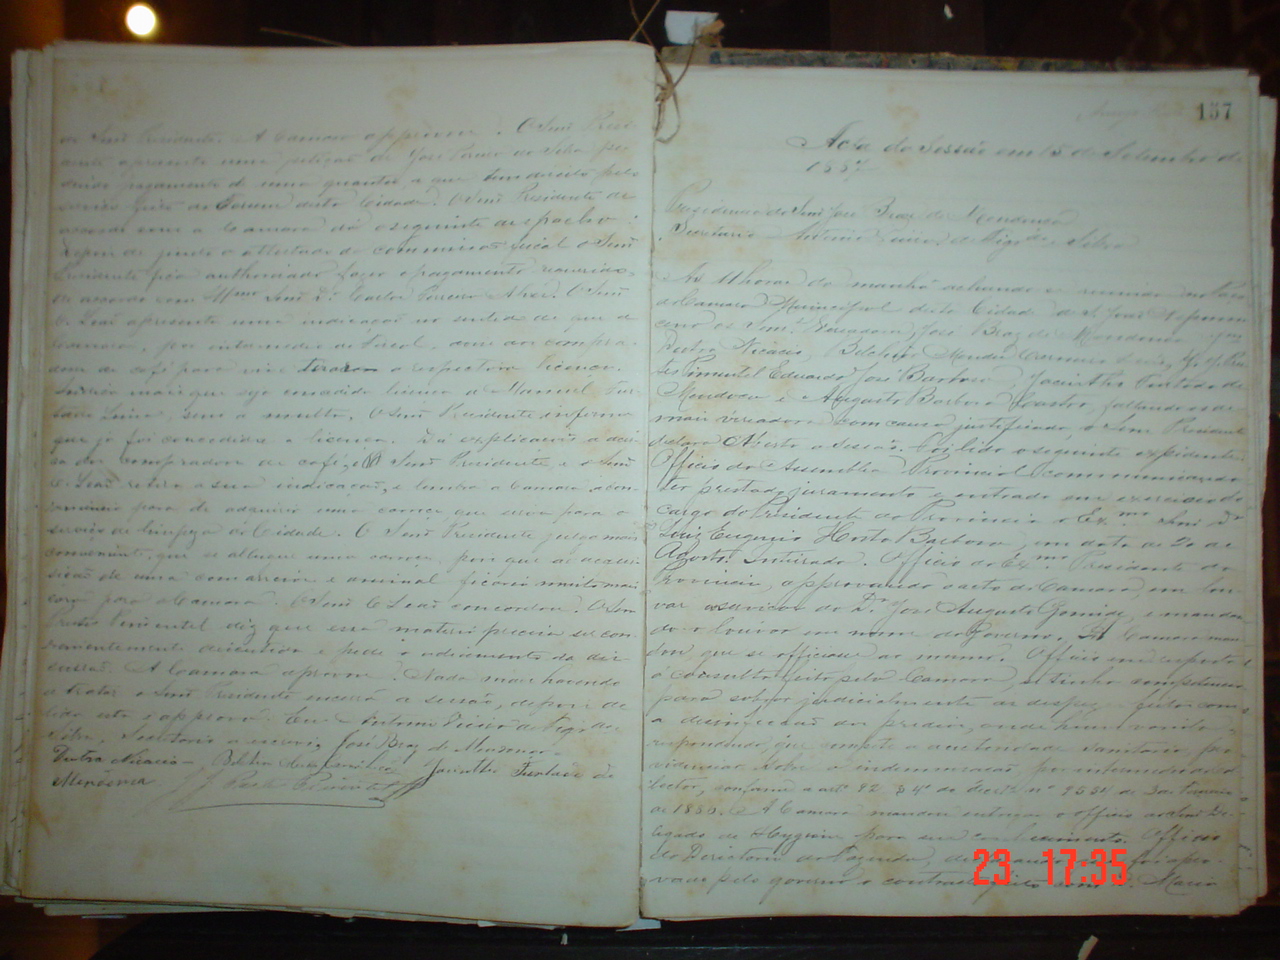 do Senr Presidente. A Camara approvou. O Senr Presi-
dente apresenta uma petição de José Pereira da Silva pe-
dindo pagamento de uma quantia a que tem direito pelo
serviço feito no Forum desta Cidade. O Senr Presidente de
accordo com a Camara dá o seguinte despacho:
depois de junto o attestado do commissão fiscal o Senr
Presidente fica authorisado fazer o pagamento requerido,
de accordo com Illmo Senr Dr Carlos Ferreira Alves. O Senr
C. Leão apresenta uma indicação no sentido de que a
Camara, por intermedio do Fiscal, avise aos compra-
dores de café para virem tirarem a respectiva licença.
mais que seja concedida licença a Manoel Fur-
tado sem a multa. O Senr Presidente informa
que já foi concedida a licença. Dá explicação a
dos compradores de café o Senr Presidente, e o Senr
C. Leão retira a sua indicação, e lembra a Camara a con-
veniencia de adquirir uma carroça que sirva para o
serviço de limpeza da Cidade. O Senr Presidente julga mais
conveniente, que se allugue uma carroça, por que a acqui-
sição de uma carroça e animal ficaria muito mais
caro para a Camara. O Senr C. Leão concordou. O Senr
Prates Pimentel diz que essa materia precisa ser con-
venientemente discutida e pede o adiamento da dis-
cussão. A Camara approvou. Nada mais havendo
a tratar o Senr Presidente encerra a sessão, depois de
lida esta e approvada. Eu Antonio
Silva, Secretario a escrevi. José Braz de Mendonça
Dutra Nicacio Jacintho Furtado de
Mendonça J. J. Prates Pimentel
157
Acta da Sessão em 15 de Setembro de
1887
Presidencia do Senr José Braz de Mendonça
Secretario Antonio Silva
As 11 horas da manhã achando se reunidos no Paço
da Camara Municipal desta Cidade de S. João Nepomu-
ceno os Senrs Vereadores José Braz de Mendonça,
Dutra Nicacio, Belchior Mendes J. J. Pra-
tes Pimentel, Eduardo José Barbosa, Jacintho Furtado de
Mendonça e Augusto Barbosa Castro, faltando os de-
mais vereadores com causa justificada, o Senr Presidente
declara Aberta a Sessão. Foi lido o seguinte expediente:
Officio da Assemblea Provincial communicando
ter prestado juramento e entrado em exercicio do
cargo de Presidente da Provincia o Exmo Senr Dr
Luiz Eugenio Horta Barbosa, em data de 20 de
Agosto. Inteirada. Officio do Exmo Presidente da
Provincia, approvando o acto da Camara, em lou-
var os serviços do Dr José Augusto e mandan-
do o louvar em nome do Governo. A Camara man-
dou que se officiasse ao mesmo. Officio em resposta
á consulta feita pela Camara, se tinha competencia
para cobrar judicialmente as despezas feitas com
a desinfecção dos predios, onde houve variola,
respondendo que compete a auctoridade Sanitaria, pro-
videnciar sobre a indemnisação, por intermedio do
lector, conforme o artº 92 § 4º do decreto nº 9554 de 3 de Fevereiro
de 1886. A Camara mandou entregar o officio ao Senr De-
legado de Hygiene para seu conhecimento. Officio
da Directoria da Fazenda, approva-
vado pelo governo o contracto feito com Maria
23 17:35